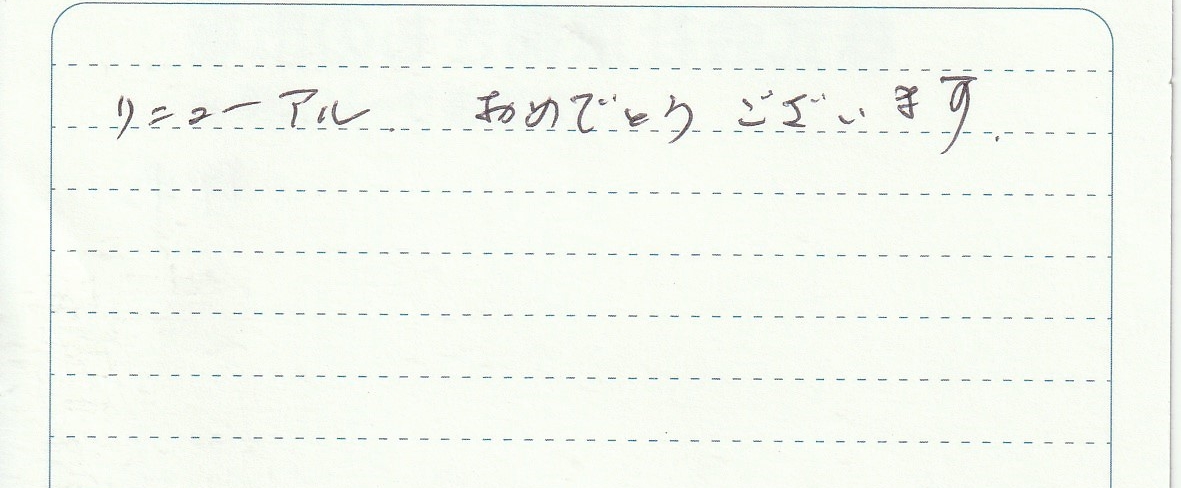 リニューアル. おめでとうございます.